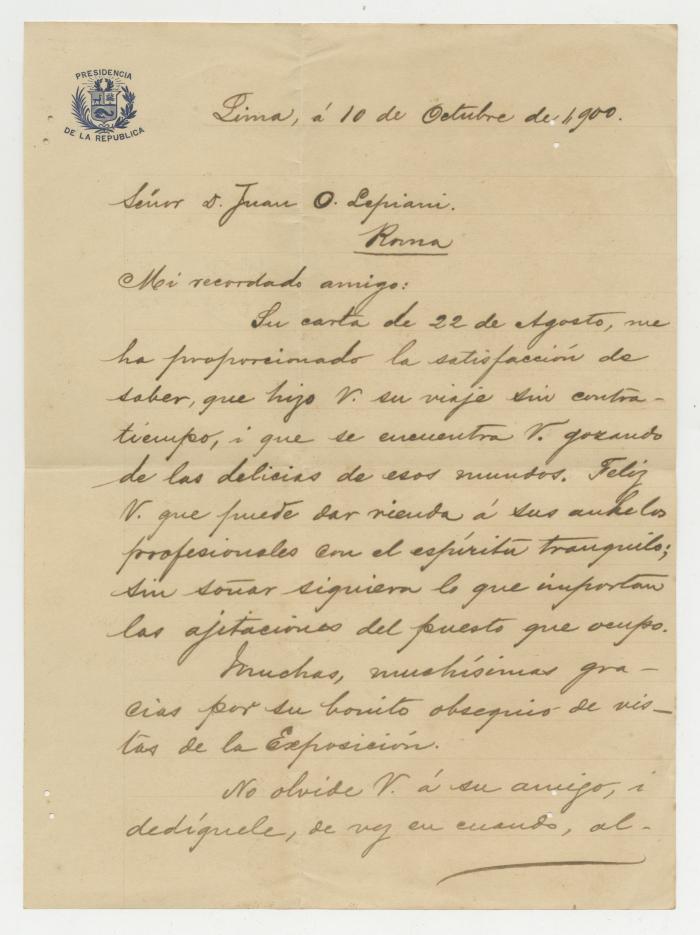 PRESIDENCIA
DE LA REPUBLICA
Lima, á 10 de Octubre de 1900.
Señor D. Juan O. Lepiani.
Roma
Mi recordado amigo:
Su carta de 22 de Agosto, me
ha proporcionado la satisfacción de
saber, que hizo V. su viaje sin contra-
tiempo, i que se encuentra V. gozando
de las delicias de esos mundos. Feliz
V. que puede dar rienda á sus anhelos
profesionales con el espíritu tranquilo;
sin soñar siquiera lo que importan
las ajitaciones del puesto que ocupo.
Muchas, muchísimas gra-
cias por su bonito obsequio de vis-
tas de la Exposición.
No olvide V. á su amigo, i
dedíquele, de vez en cuando, al-